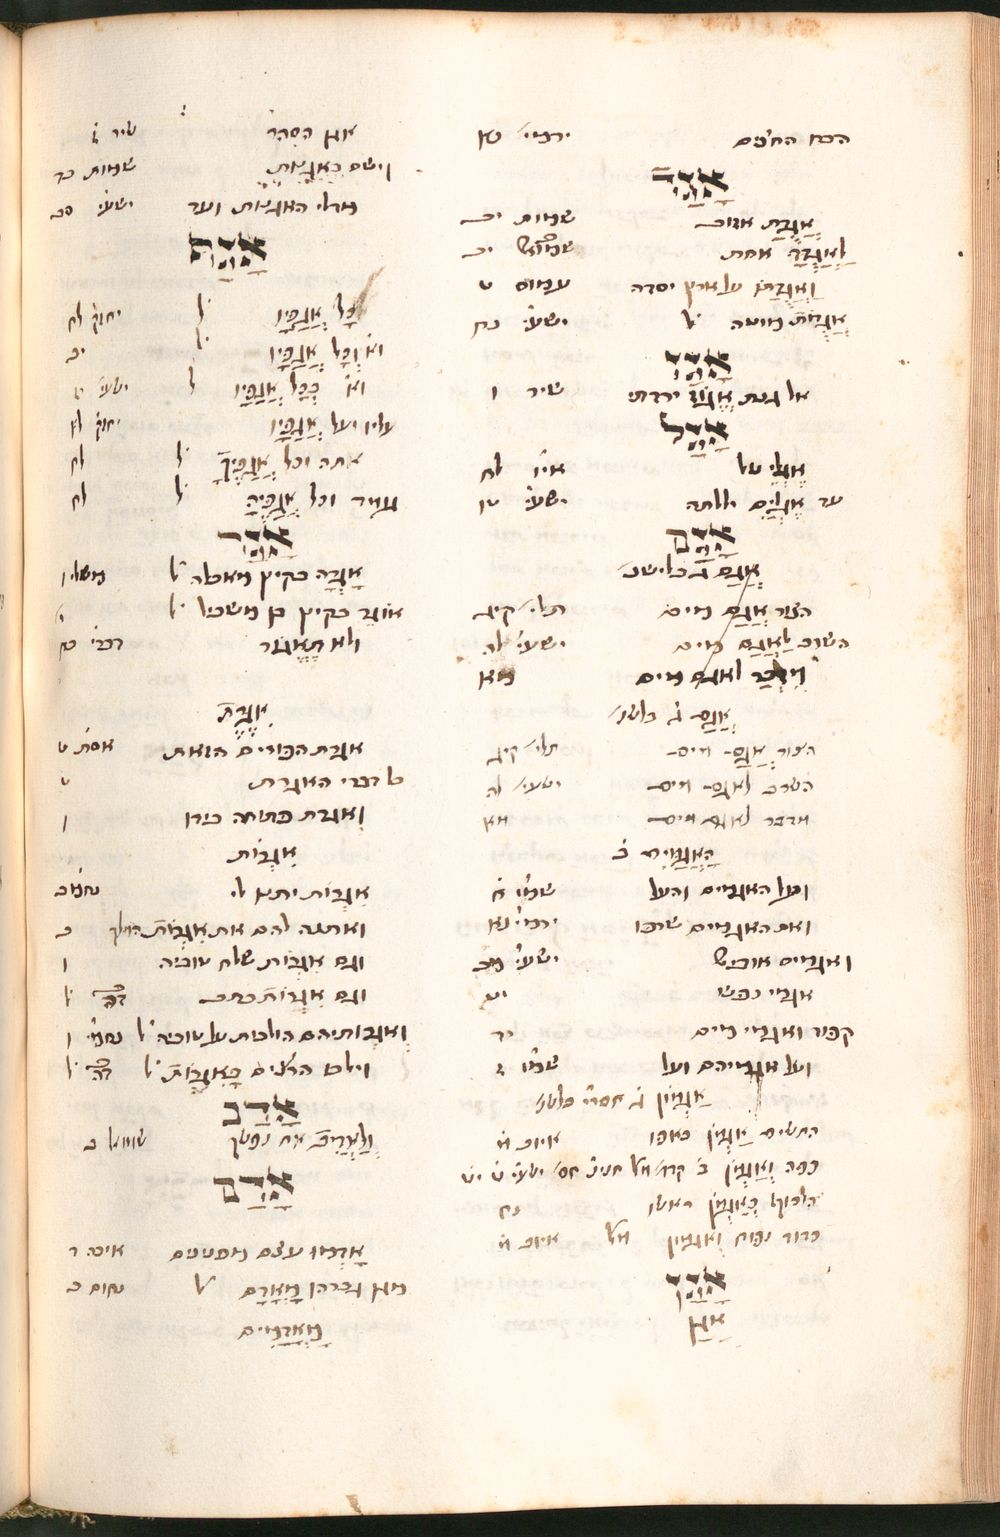 הכמ החצים ירמי׳ טא
אגד
אֲגֻדַּת אזוב שמות יב
לַאֲגֻדָּה אחת שמואל יב
וַאֲגֻדָּתוֹ על ארץ יסדה עמוס ט
אֲגֻדּוֹת מוטה ל׳ ישעי׳ נח
אגוז
אל גנת אֱגוֹז ירדתי שיר ו
אגל
אֶגְלֵי טל איו׳ לח
עד אֶגְלַיִם יללתה ישעי׳ טו
אגם
אֲגַם ג׳ בלישנ׳
הצור אֲגַם מים תלי׳ קיד
השרב לַאֲגַם מים ישעי׳ לה
מִדְבָּר לאגם מים מא
אֲגַם ג׳ בלשנ׳
הצור אֲגַם מים תלי׳ קיד
השרב לאגם מים ישעי׳ לה
מדבר לאגם מים מא
הָאֲגַמִּים ב׳
ועל האגמים והעל שמו׳ ח
ואת האגמים שרפו ירמי׳ נא
ואגמים אוביש ישעי׳ מב
אגמי נפש יט
קפוד ואגמי מים יד
ועל אגמיהם ועל שמו׳ ז
אַגְמוֹן ג׳ חס׳ בלשנ׳
התשים אַגְמוֹן באפו איוב מ
כפה וְאַגְמוֹן ב׳ ישעי׳ ט יט
הלכוף כְּאַגְמֹן ראשו נח
כדוד נפוח ואגמון איוב מ
אגן
אַגַּן
אגן הסהר שיר ז
וישם בָּאַגָּנֹת שמות כד
מכלי האגנות ועד ישעי׳ כב
אגף
וכָל אֲגַפָּיו ל׳ יחזק׳ לח
וְכָל אֲגַפָּיו ל׳ יב
בְּכָל אֲגַפָּיו ל׳
עליו ועל אֲגַפָּיו יחזק׳ לח
אתה וכל אֲגַפֶּיךָ ל׳ לח
גמר וכל אֲגַפֶּיהָ ל׳ לח
אגר
אָגְרָה בקציר מאכלה ל׳ משלי ו
אוֹגר בקיץ בן משכיל ל׳ י
ולא תֶאֱגֹר דברי׳ כח
אִגֶּרֶת
אגרת הפורים הזאת אסת׳ ט
כל דברי האגרת ט
ואגרת פתוחה בידו ו
אִגְּרוֹת
אִגְּרוֹת יתנו לי נחמ׳ ב
ואתנה להם את אִגְּרוֹת המלך ב
וגם אִגְּרוֹת שלח טוביה ו
וגם אִגְּרוֹת כתב דה׳ ל׳
וְאִגְּרוֹתיהם הולכות על טוביה ל׳ נחמ׳ ו
וילכו הרצים בָּאִגְּרוֹת ל׳ דה׳ ל׳
אדב
וְלַאֲדִיב את נפשך שמואל ב
אדם
אָדְמוּ עצם מפנינים איכה ד
מגן גבריהו מְאָדָּם ל׳ נחום ב
מְאָדָּמִים